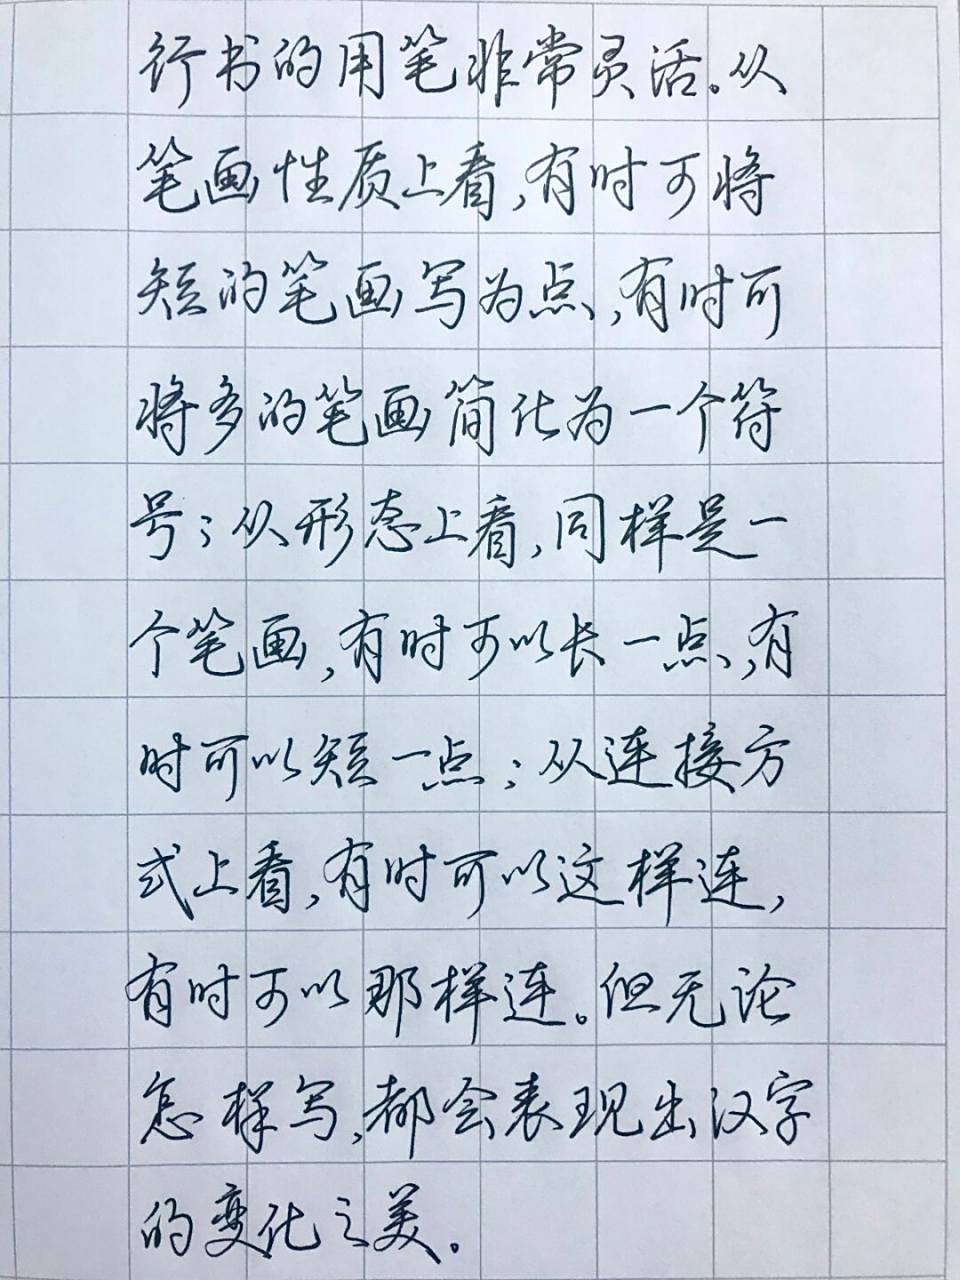 行书的用笔非常灵活。从
笔画性质上看,有时可将
短的笔画写为点,有时可
将多的笔画简化为一个符
号;从形态上看,同样是一
个笔画,有时可以长一点,有
时可以短一点;从连接方
式上看,有时可以这样连,
有时可以那样连。但无论
怎样写,都会表现出汉字
的变化之美。